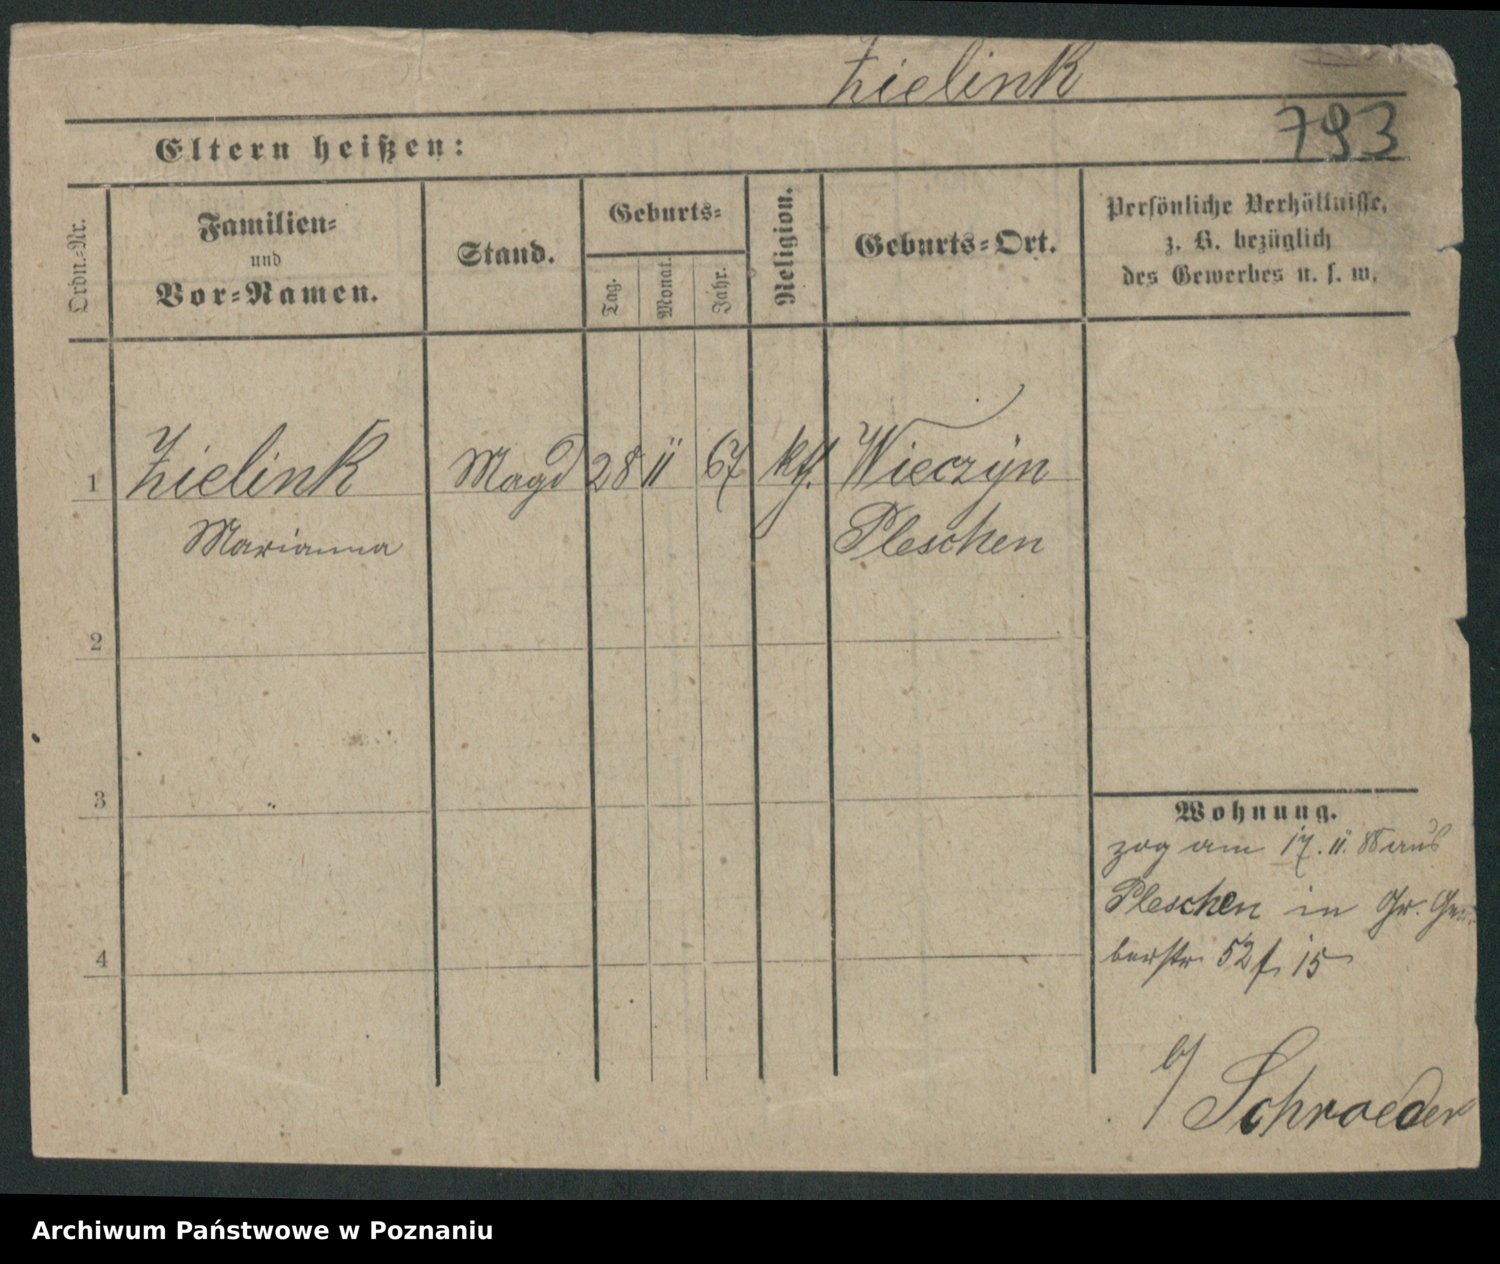 Zielink
793
Eltern heißen:
Ordn.-Nr.
Familien-
und
Vor-Namen.
Stand.
Geburts-
Tag.
Monat.
Jahr.
Religion.
Geburts-Ort.
Persönliche Verhältnisse,
z. B. bezüglich
des Gewerbes u. s. w.
1 Zielink Magd 28 11 67 kth. Wieczyn
Marianna Pleschen
2
3
4
Wohnung.
zog am 17. 11. 88 aus
Pleschen in Gr. Ger-
berstr 52 f. 15
b/ Schroeder
Archiwum Państwowe w Poznaniu